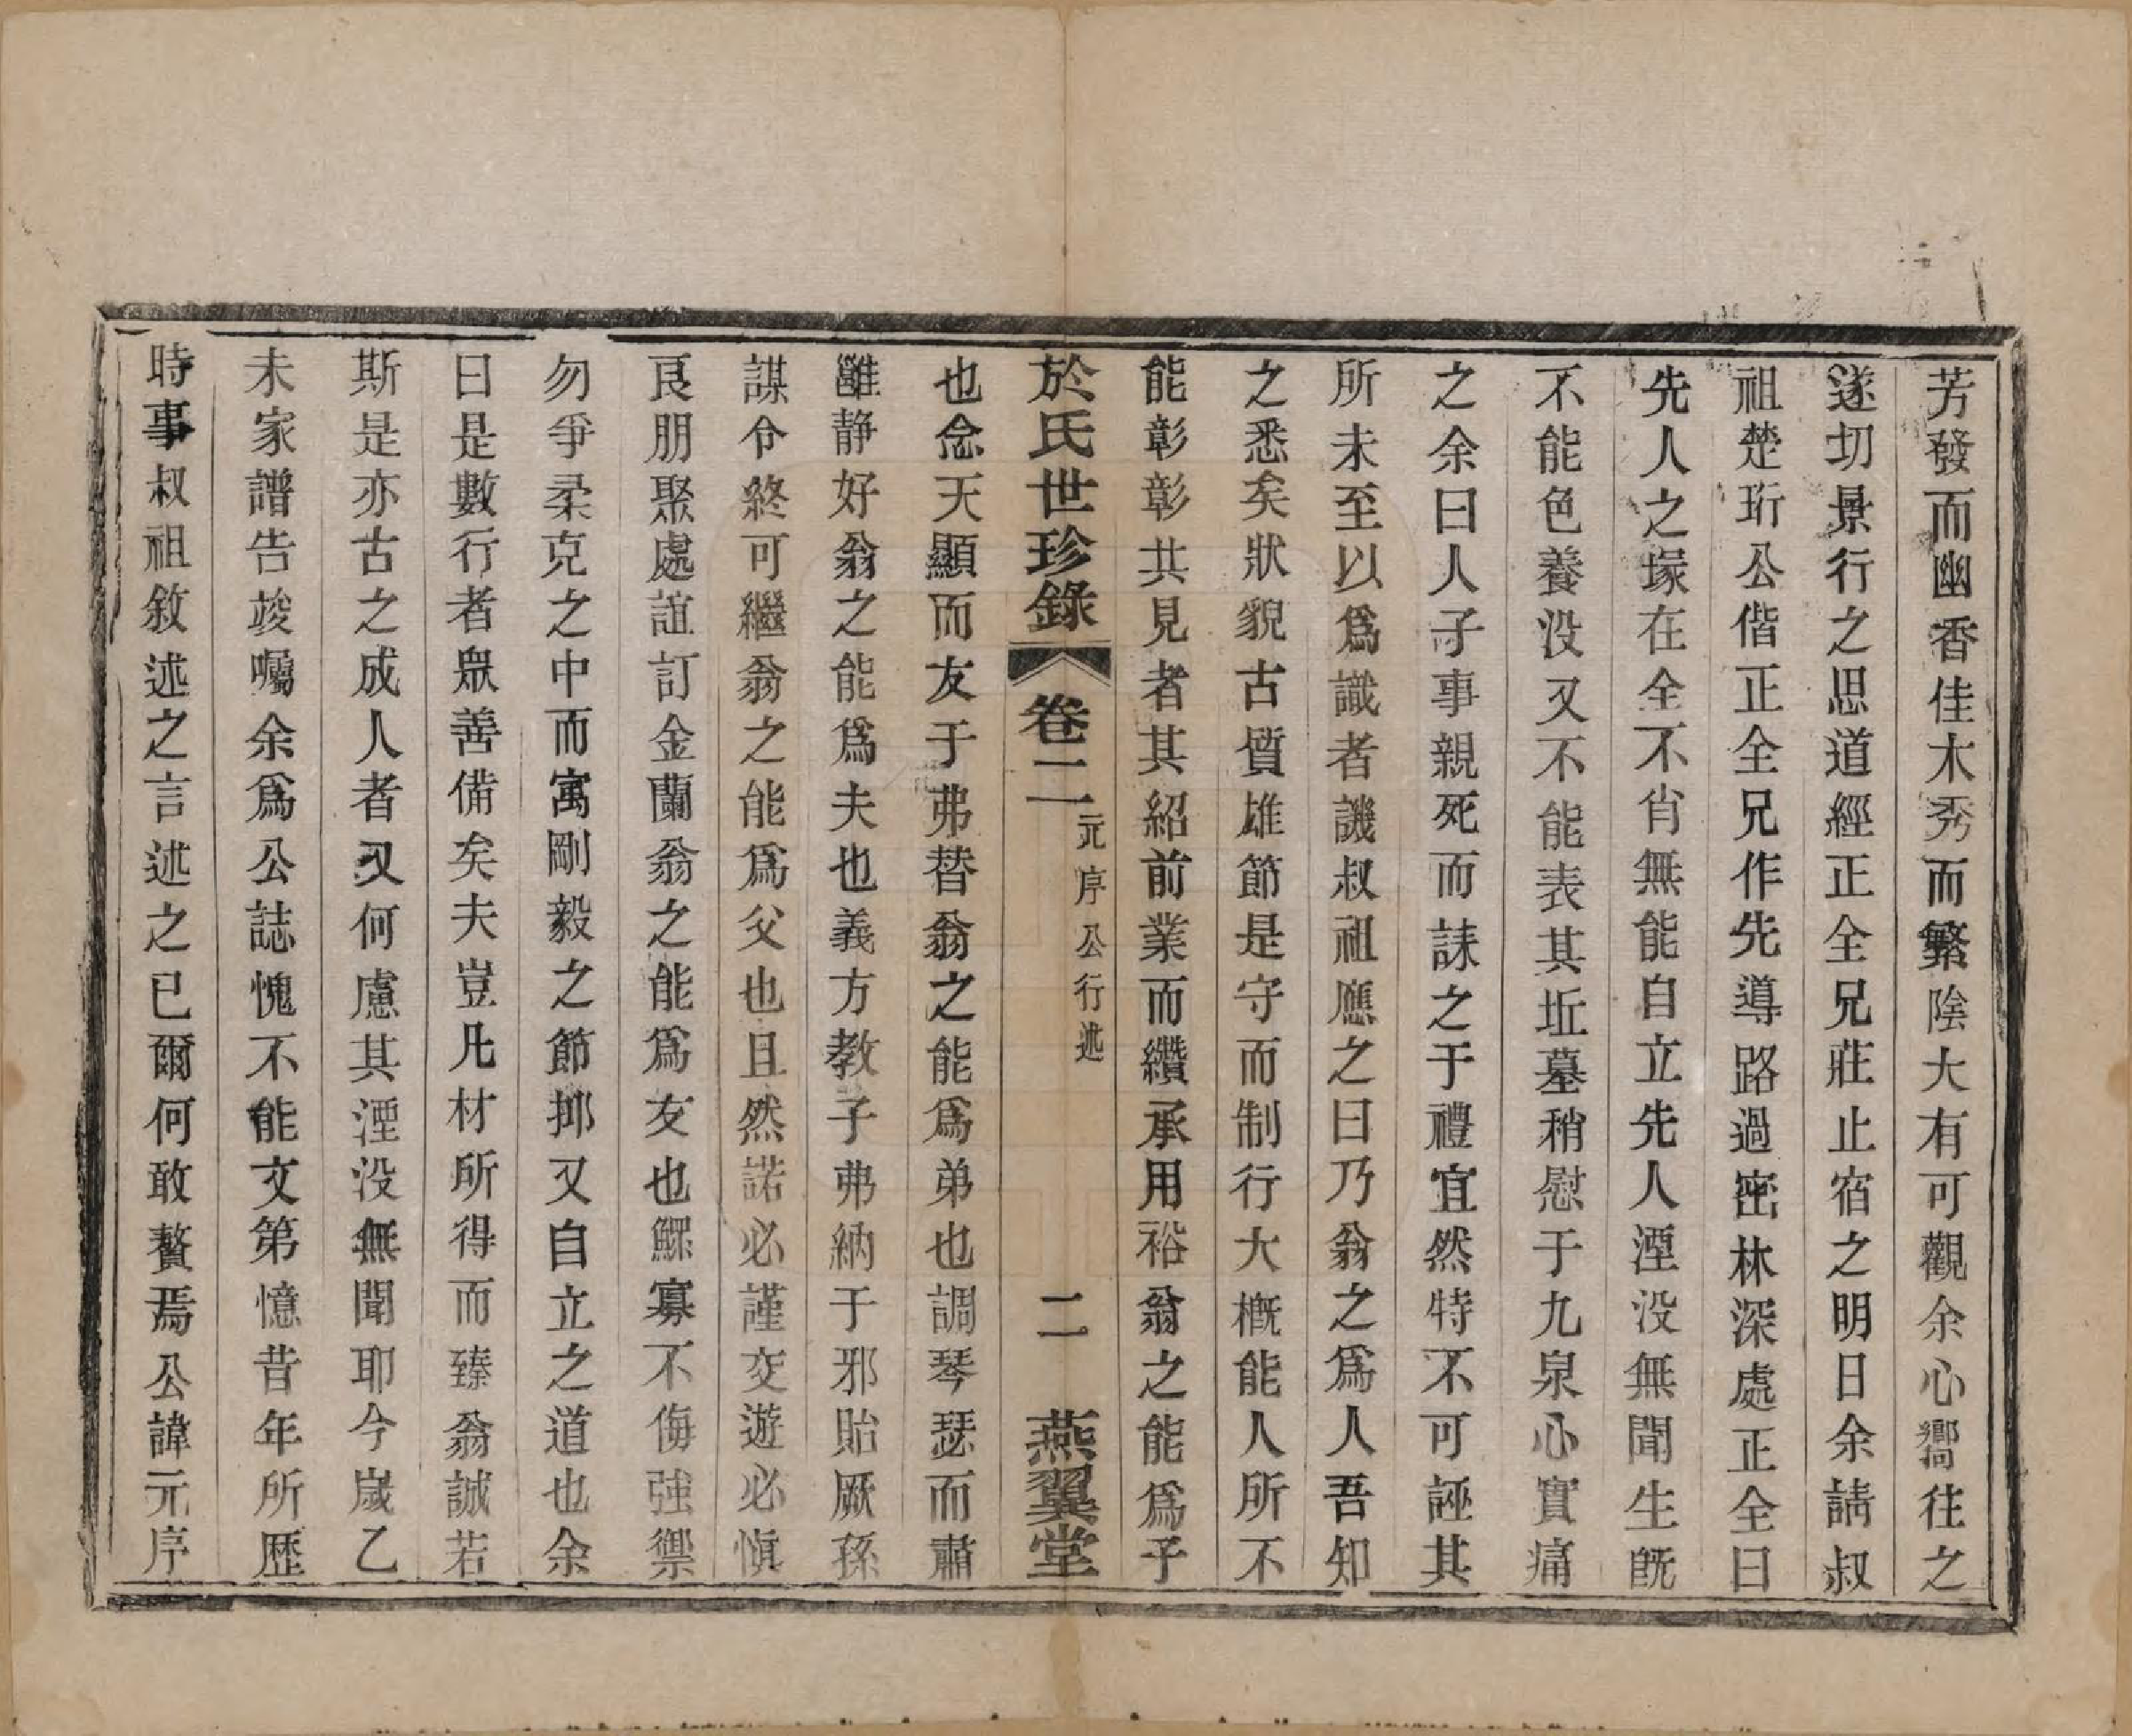 芳發而幽香佳木秀而繁陰大有可觀余心嚮往之
遂切景行之思道經正全兄莊止宿之明日余請叔
祖楚珩公偕正全兄作先導路過密林深處正全曰
先人之塚在全不肖無能自立先人湮没無聞生旣
不能色養没又不能表其坵墓稍慰于九泉心實痛
之余曰人子事親死而誄之于禮宜然特不可誣其
所未至以爲識者譏叔祖應之曰乃翁之爲人吾知
之悉矣狀貌古質雄節是守而制行大槪能人所不
能彰彰共見者其紹前業而纘承用裕翁之能爲子
於氏世珍錄 卷二 元序公行述 二 燕翼堂
也念天顯而友于弗替翁之能爲弟也調琴瑟而肅
雝静好翁之能爲夫也義方教子弗納于邪貽厥孫
謀令終可繼翁之能爲父也且然諾必謹交遊必慎
良朋聚處誼訂金蘭翁之能爲友也鰥寡不侮強禦
勿爭柔克之中而寓剛毅之節抑又自立之道也余
曰是數行者衆善備矣夫豈凡材所得而臻翁誠若
斯是亦古之成人者又何慮其湮没無聞耶今歲乙
未家譜告竣囑余爲公誌愧不能文第憶昔年所歴
時事叔祖敘述之言述之已爾何敢贅焉公諱元序